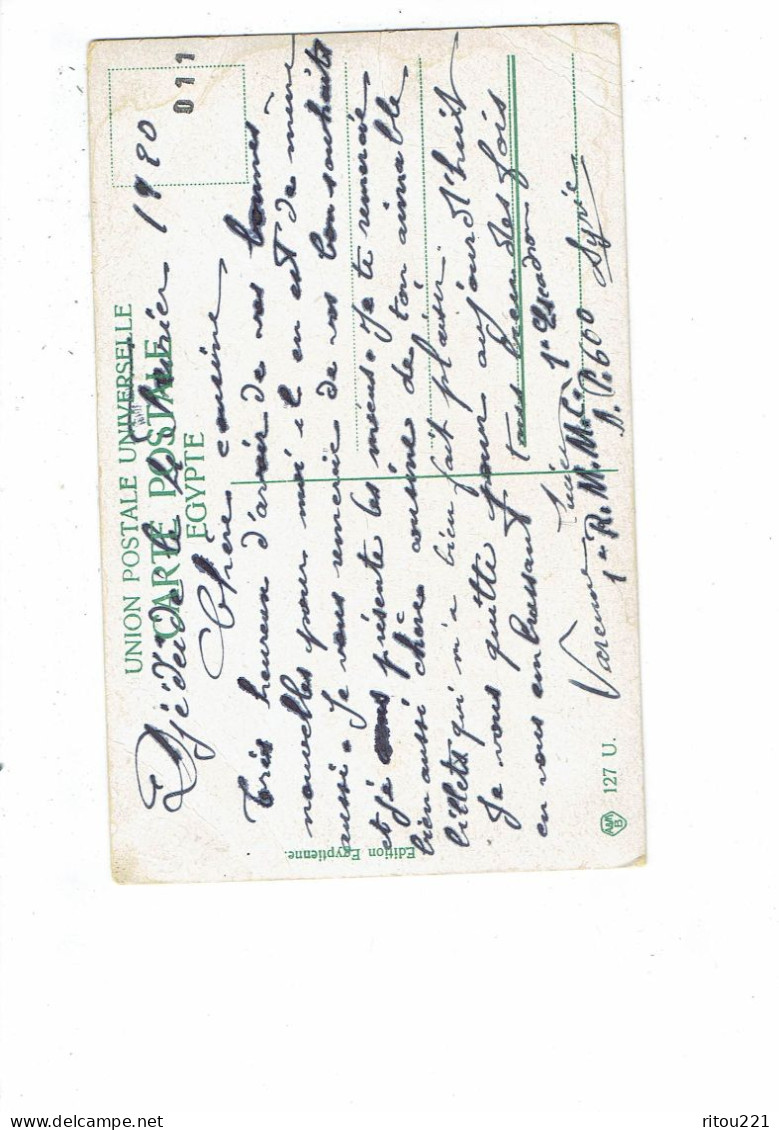 UNION POSTALE UNIVERSELLE
CARTE POSTALE
EGYPTE
011
Djédeïdé le 4 Février 1920
Chère cousine
Très heureux d'avoir de vos bonnes
nouvelles pour moi il en est de meme
aussi. Je vous remercie de vos bon souhaits
et je vous présente les miens. Je te remercie
bien aussi chère cousine de ton aimable
billets qui m'a bien fait plaisir.
Je vous quitte pour aujourd'huit
en vous embrassant tous bien des fois
Lucien 1er Escadron
1er R. M. M. C.
S. P. 600 Syrie
Edition Egyptienne.
127 U.
delcampe.net
ritou221